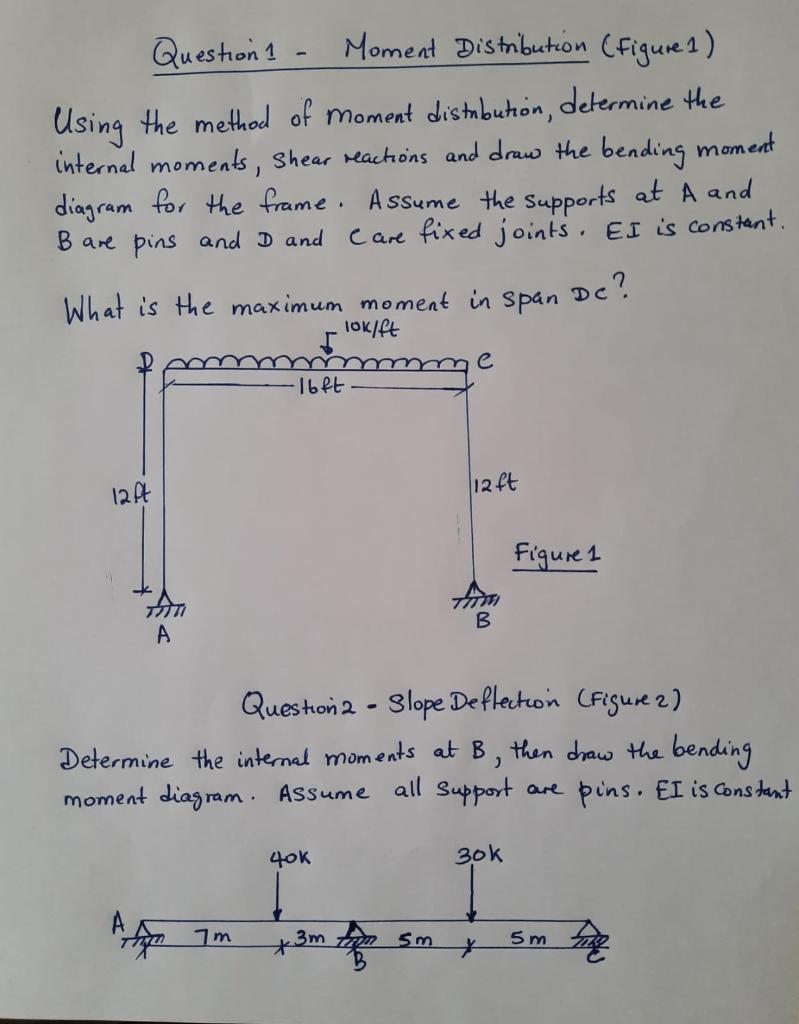 Question 1 - Moment Distribution (Figure 1)
Using the method of moment distribution, determine the
internal moments, Shear reactions and draw the bending moment
diagram for the frame. Assume the supports at A and
B are pins and D and C are fixed joints. EI is constant.
What is the maximum moment in span DC?
10k/ft
D
C
16ft
12ft
12ft
Figure 1
A
B
Question 2 - Slope Deflection (Figure 2)
Determine the internal moments at B, then draw the bending
moment diagram. Assume all support are pins. EI is constant
40k
30k
A
7m
3m
5m
5m
B
C